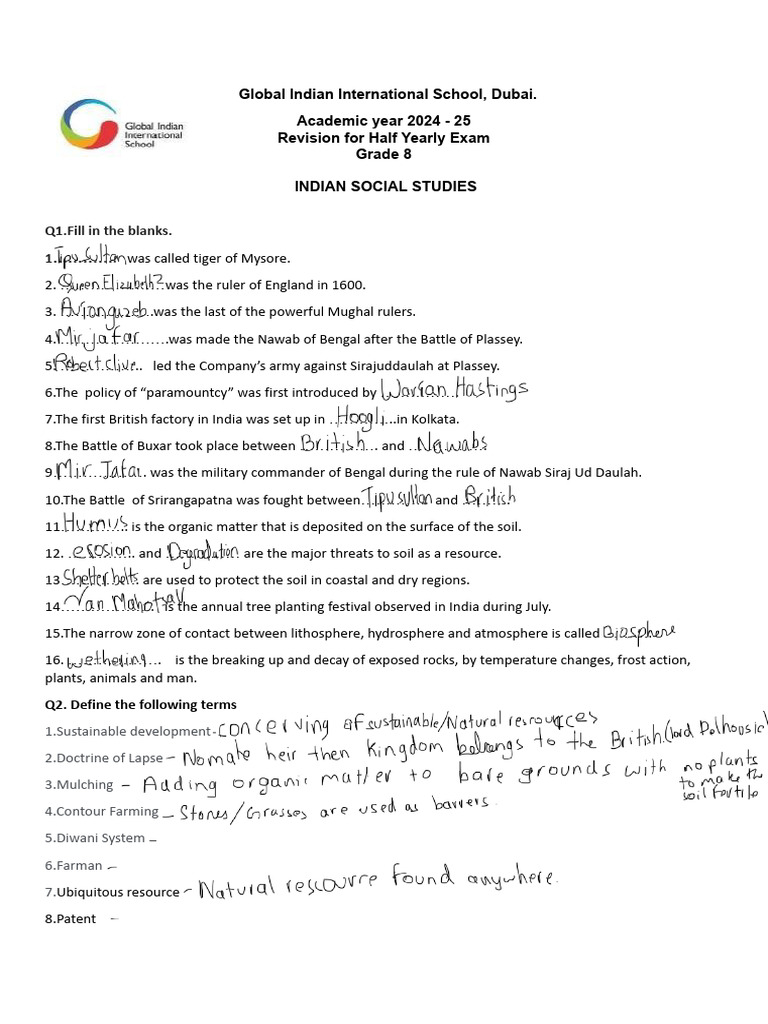 Global Indian International School, Dubai.
Global Indian
International
School
Academic year 2024 - 25
Revision for Half Yearly Exam
Grade 8
INDIAN SOCIAL STUDIES
Q1.Fill in the blanks.
1.Tipu Sultan was called tiger of Mysore.
2. Queen Elizabeth? was the ruler of England in 1600.
3. Auranguzeb was the last of the powerful Mughal rulers.
4. Mir jafar was made the Nawab of Bengal after the Battle of Plassey.
5 Robert clive led the Company's army against Sirajuddaulah at Plassey.
6.The policy of "paramountcy" was first introduced by Warran Hastings
7.The first British factory in India was set up in Hoogli in Kolkata.
8.The Battle of Buxar took place between British and Nawabs
9. Mir Jafar was the military commander of Bengal during the rule of Nawab Siraj Ud Daulah.
10.The Battle of Srirangapatna was fought between Tipu sultan and British
11. Humus is the organic matter that is deposited on the surface of the soil.
12. erosion and Degradation are the major threats to soil as a resource.
13 Shelter belts are used to protect the soil in coastal and dry regions.
14. Van Mahotsav is the annual tree planting festival observed in India during July.
15.The narrow zone of contact between lithosphere, hydrosphere and atmosphere is called Biosphere
16. wethering is the breaking up and decay of exposed rocks, by temperature changes, frost action,
plants, animals and man.
Q2. Define the following terms
1.Sustainable development- concerving of sustainable/Natural resources
2.Doctrine of Lapse - No male heir then kingdom belongs to the British.(lord Dalhousie)
3.Mulching - Adding organic matter to bare grounds with no plants
to make the
soil fertile
4.Contour Farming - Stones/Grasses are used as barrers.
5.Diwani System –
6.Farman –
7.Ubiquitous resource - Natural rescource found anywhere.
8.Patent –